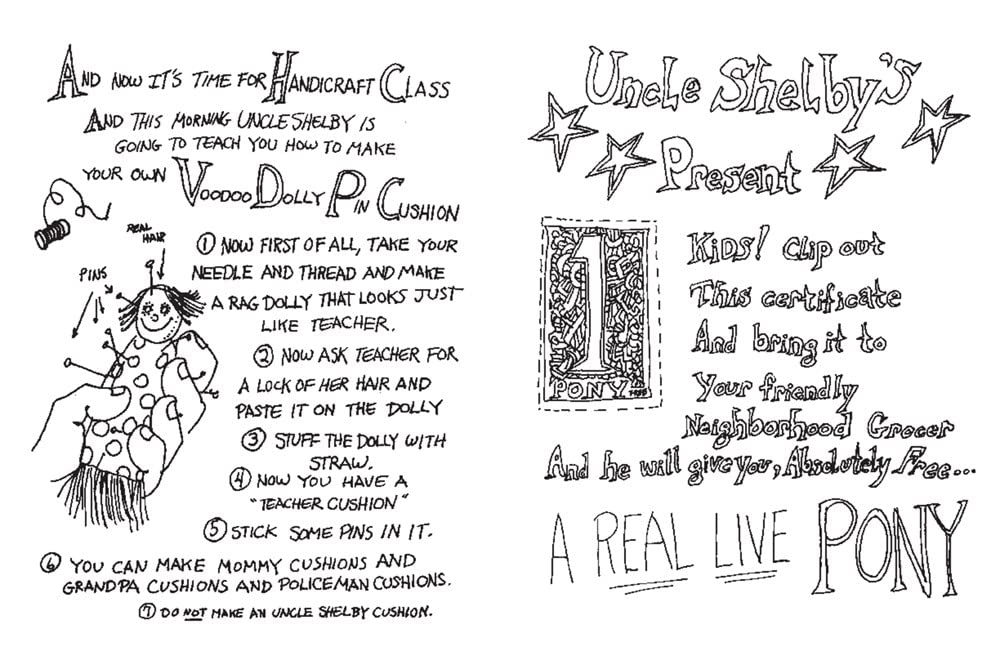 AND NOW IT'S TIME FOR HANDICRAFT CLASS
AND THIS MORNING UNCLE SHELBY IS
GOING TO TEACH YOU HOW TO MAKE
YOUR OWN VOODOO DOLLY PIN CUSHION
REAL
HAIR
PINS
① NOW FIRST OF ALL, TAKE YOUR
NEEDLE AND THREAD AND MAKE
A RAG DOLLY THAT LOOKS JUST
LIKE TEACHER.
② NOW ASK TEACHER FOR
A LOCK OF HER HAIR AND
PASTE IT ON THE DOLLY
③ STUFF THE DOLLY WITH
STRAW.
④ NOW YOU HAVE A
"TEACHER CUSHION"
⑤ STICK SOME PINS IN IT.
⑥ YOU CAN MAKE MOMMY CUSHIONS AND
GRANDPA CUSHIONS AND POLICEMAN CUSHIONS.
⑦ DO NOT MAKE AN UNCLE SHELBY CUSHION.
Uncle Shelby's
Present
1
PONY
Kids! Clip out
This certificate
And bring it to
Your friendly
Neighborhood Grocer
And he will give you, Absolutely Free...
A REAL LIVE PONY